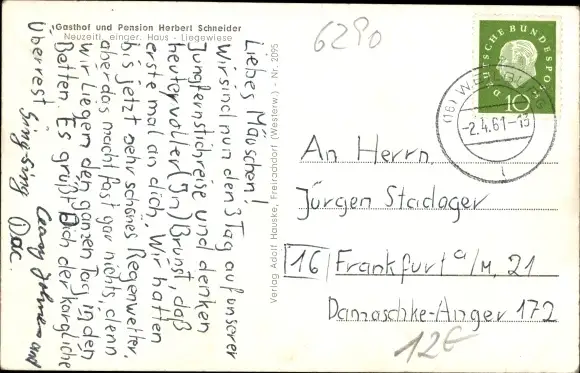 Gasthof und Pension Herbert Schneider
Neuzeitl. einger. Haus - Liegewiese
Liebes Mäuschen!
Wir sind nun den 3 Tag auf unserer
Jungfernstichreise und denken
heute voller (In)Brunst, daß
erste mal an dich. Wir hatten
bis jetzt sehr schönes Regenwetter.
aber das macht fast gar nichts, denn
wir liegen den ganzen Tag in den
Betten. Es grüßt Dich der kärgliche
Überrest
Sing-Sing und
Doc.
Verlag Adolf Hauske, Freiraddorf (Westerw.) - Nr. 2095
6290
DEUTSCHE BUNDESPOST
10
(16) WEILBURG
-2.4.61-13
An Herrn
Jürgen Stadager
16 Frankfurt a/M. 21
Damaschke-Anger 172
12€